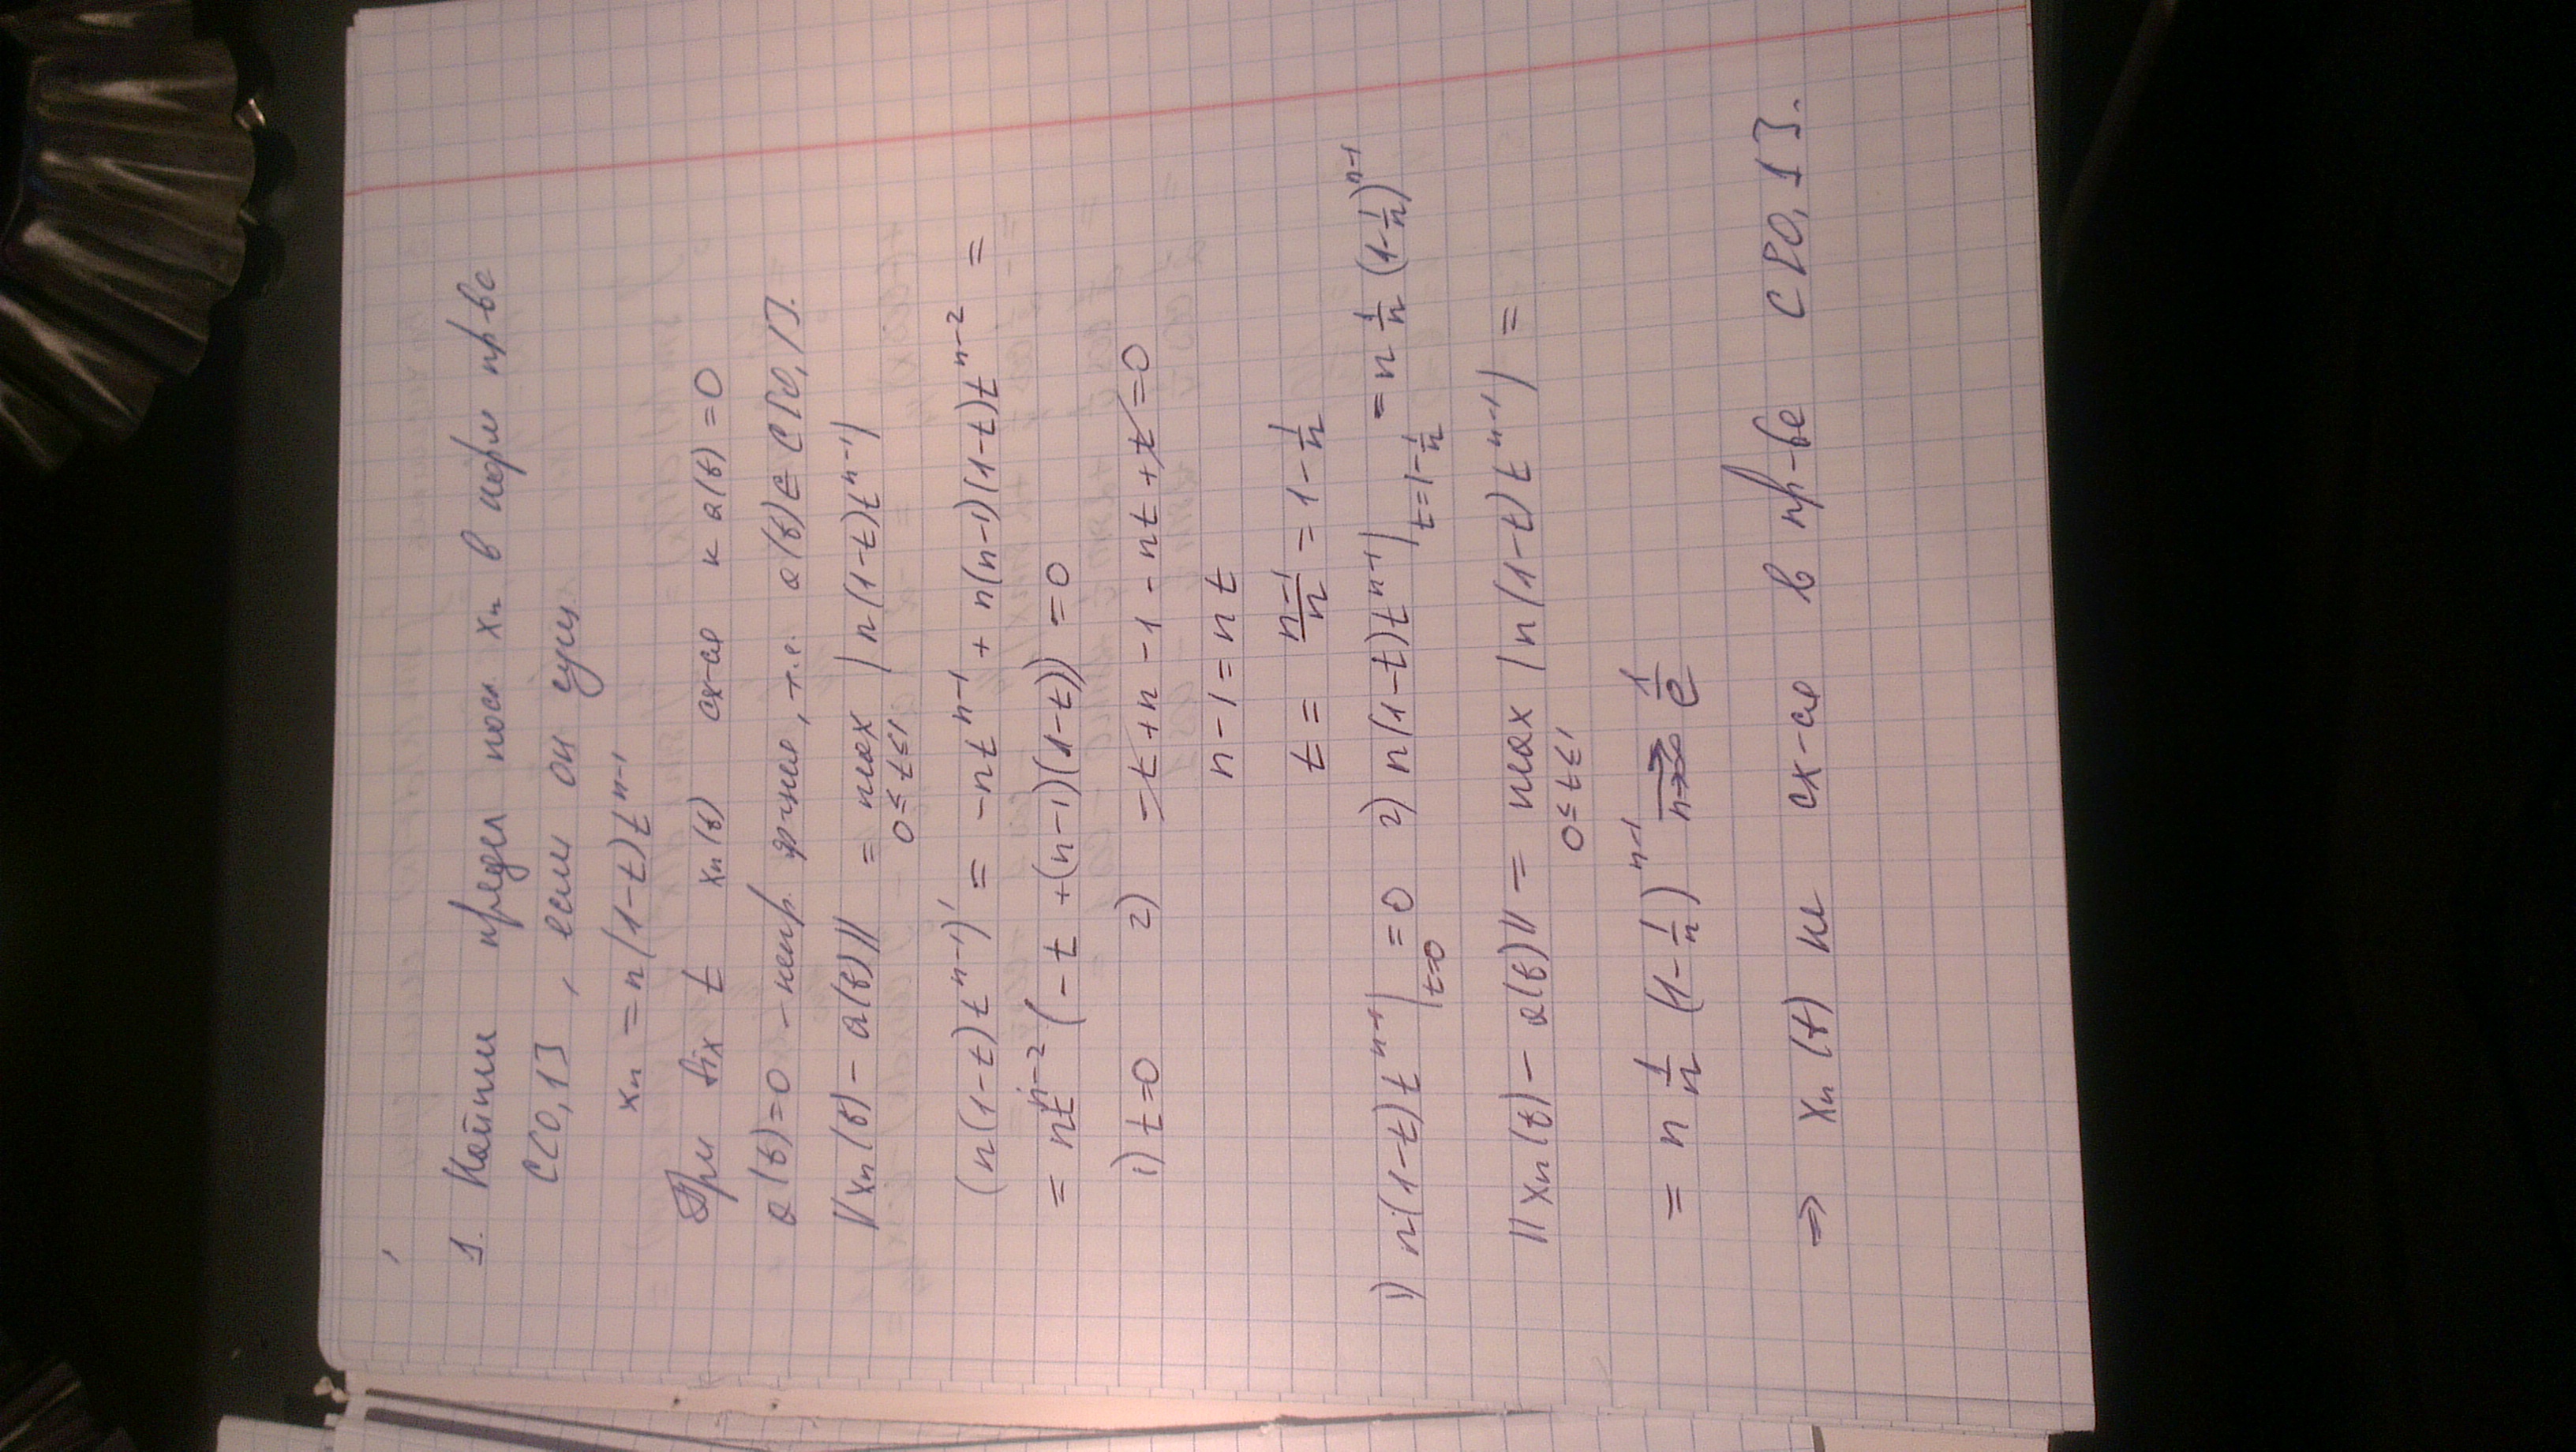 1. Найти предел посл xₙ в норм пр-ве
C[0,1], если он сущ.
xₙ = n(1-t)tⁿ⁻¹
При fix t xₙ(t) сх-ся к a(t)=0
a(t)=0 - непр. ф-ция, т.е. a(t)∈C[0,1].
||xₙ(t) - a(t)|| = max |n(1-t)tⁿ⁻¹|
0≤t≤1
(n(1-t)tⁿ⁻¹)' = -ntⁿ⁻¹ + n(n-1)(1-t)tⁿ⁻² =
= ntⁿ⁻²(-t+(n-1)(1-t)) = 0
1) t=0 2) -t+n-1-nt+t=0
n-1=nt
t = (n-1)/n = 1-1/n
1) n(1-t)tⁿ⁻¹|t=0 = 0 2) n(1-t)tⁿ⁻¹|t=1-1/n = n 1/n (1-1/n)ⁿ⁻¹
||xₙ(t) - a(t)|| = max |n(1-t)tⁿ⁻¹| =
0≤t≤1
= n 1/n (1-1/n)ⁿ⁻¹ →n→∞ 1/e
⇒ xₙ(t) не сх-ся в пр-ве C[0,1].